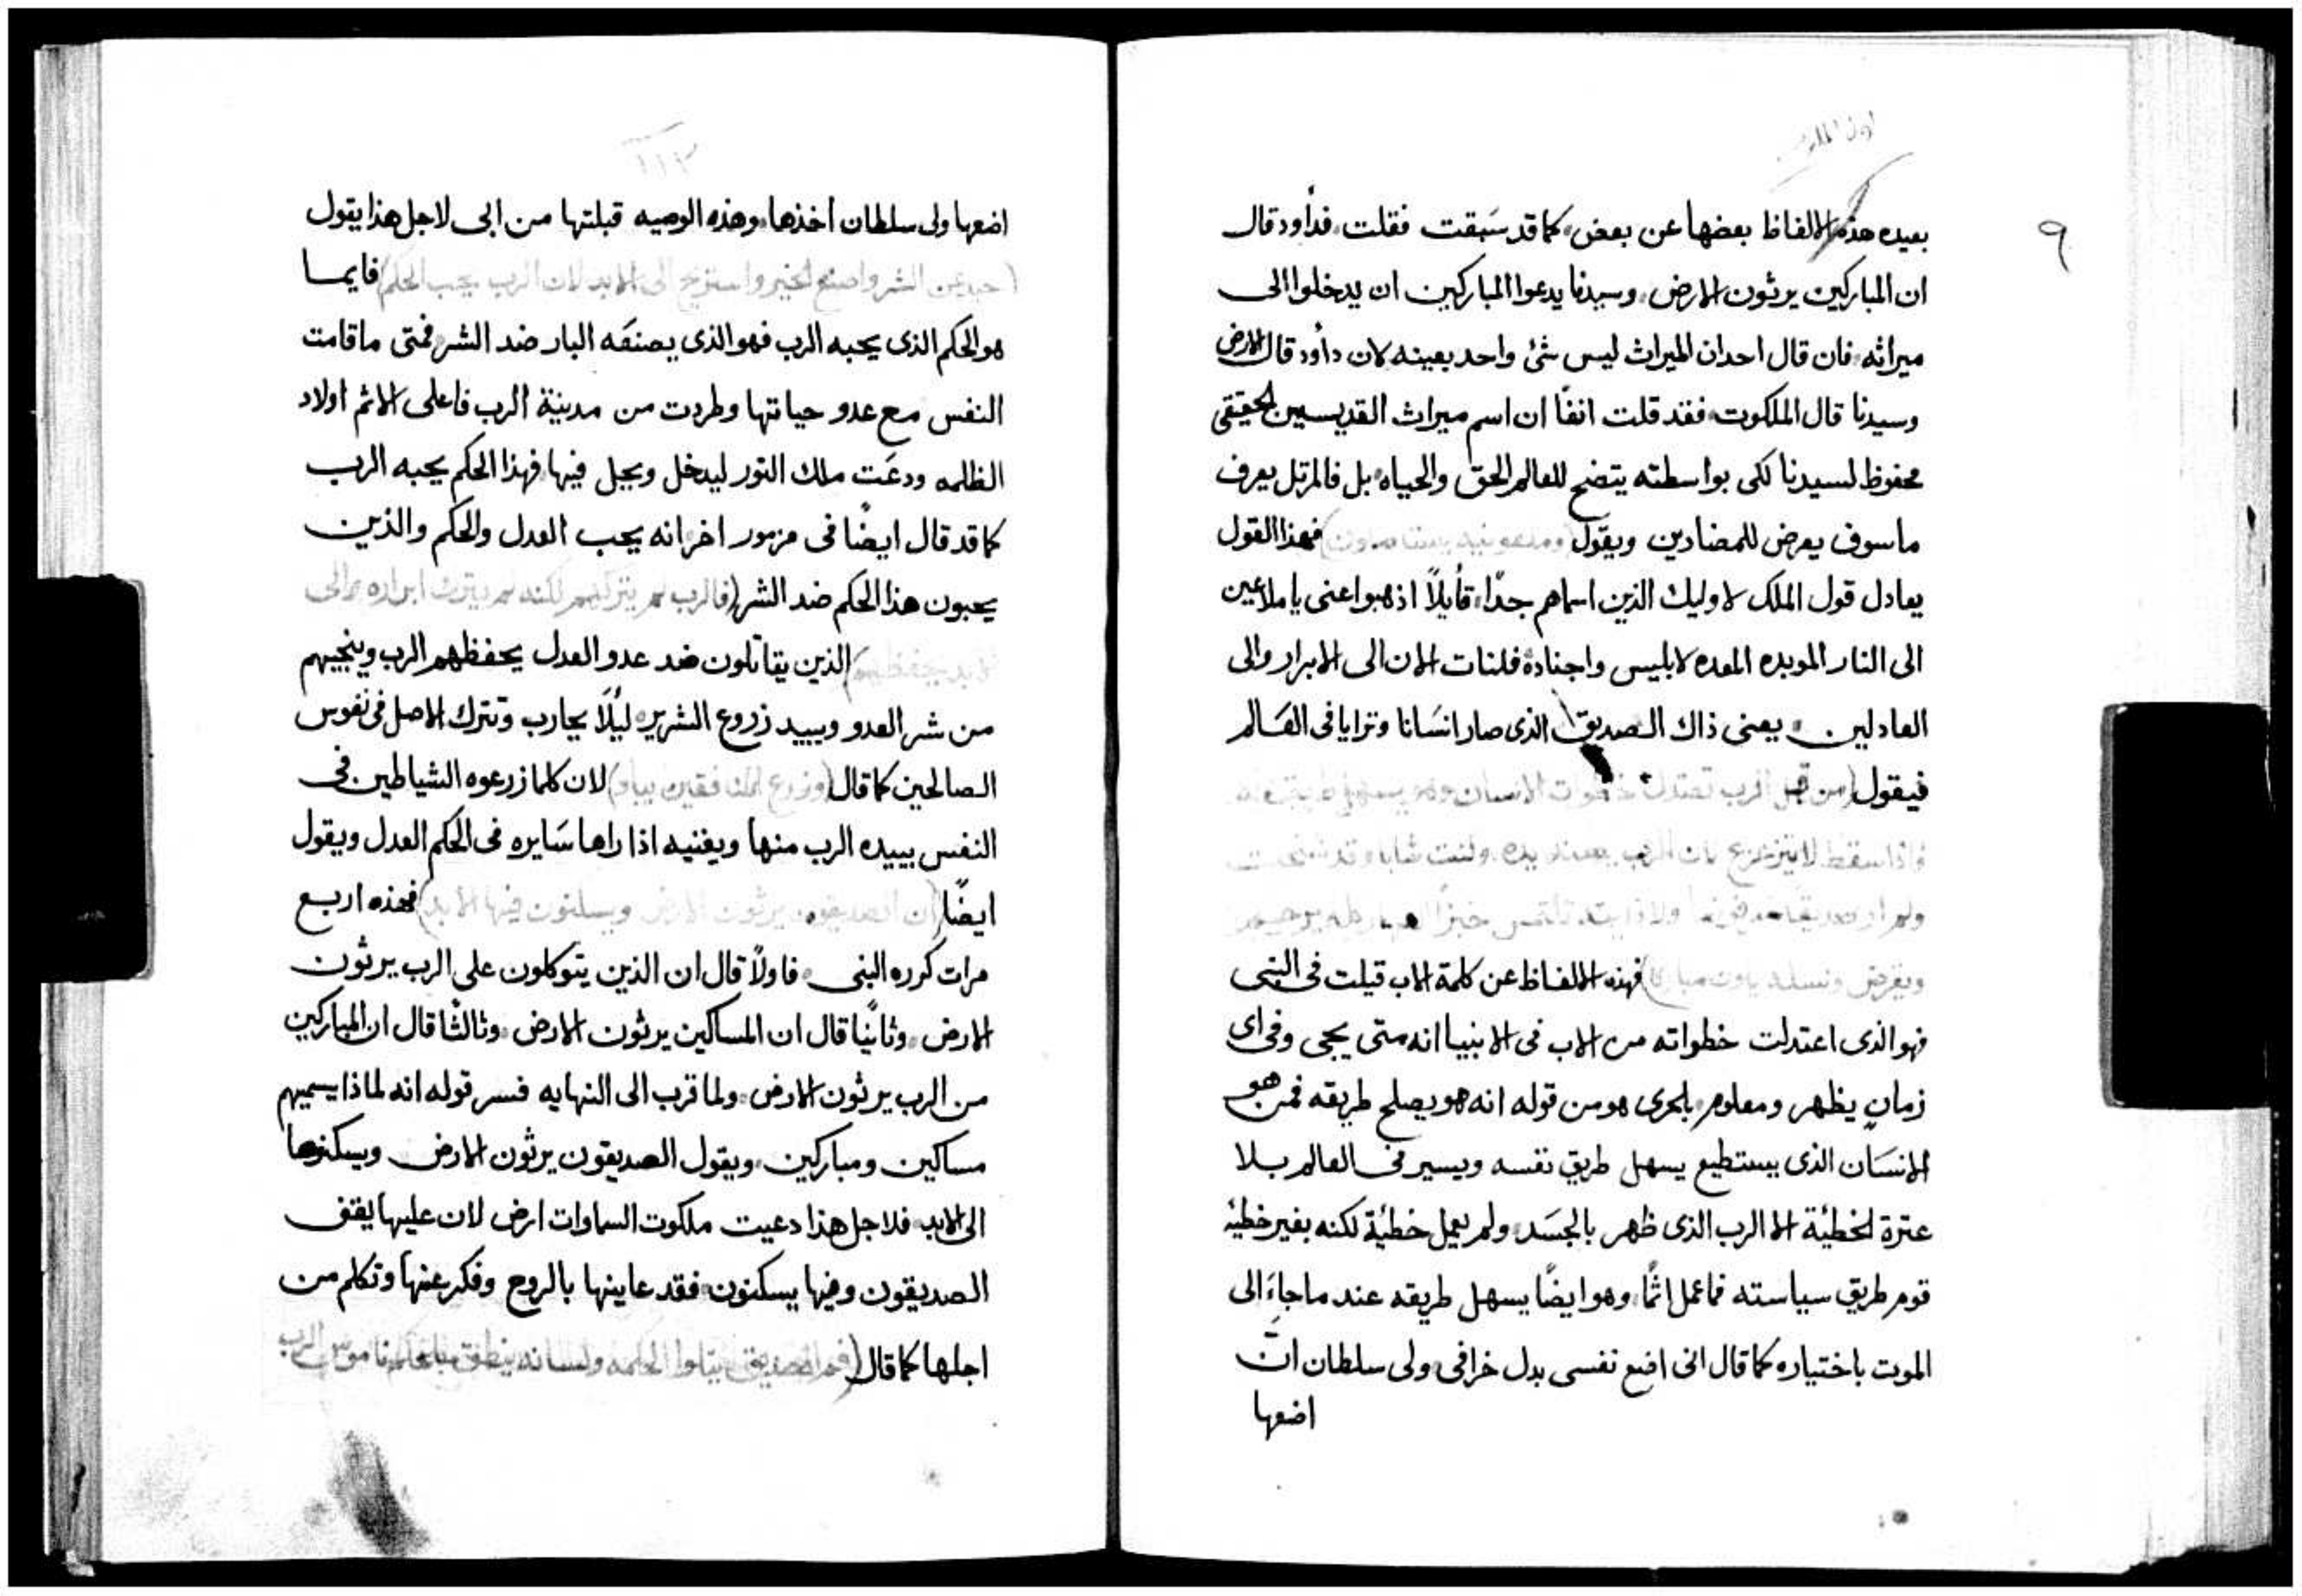 ٩
بعيده هذه الالفاظ بعضها عن بعض كما قد سَبقت فقلت فدأود قال
ان المباركين يرثون الارض وسيدنا يدعوا المباركين ان يدخلوا الى
ميراثه فان قال احد ان الميراث ليس شئ واحد بعينه لان دأود قال الارض
وسيدنا قال الملكوت فقد قلت انفًا ان اسم ميراث القديسين الحقيقى
محفوظ لسيدنا لكى بواسطته يتضح للعالم الحق والحياه بل فالمرتل يعرف
ما سوف يعرض للمضادين ويقول فهذا القول
يعادل قول الملك لاوليك الذين اسماهم جدًا قأيلاً اذهبوا عنى يا ملاعين
الى النار الموبده المعده لابليس واجناده فلنات الان الى الابرار والى
العادلين يعنى ذاك الصديق الذى صار انسَانا وترايا فى العَالم
فيقول (من قبل الرب تعتدل خطوات الانسان
فاذا سقط لا يتزعزع لان الرب
ويقرض ونسله يكون مباركا) فهذه الالفاظ عن كلمة الاب قيلت فى النبى
فهو الذى اعتدلت خطواته من الاب فى الانبيا انه متى يجى وفى اى
زمان يظهر ومعلوم بلحرى هو من قوله انه هو يصلح طريقه فمن هو
الانسَان الذى يستطيع يسهل طريق نفسه ويسير فى العالم بلا
عترة الخطيئة الا الرب الذى ظهر بالجسَد ولم يعمل خطيئة لكنه بغير خطيئه
قوم طريق سياسته فما عمل اثمًا وهو ايضًا يسهل طريقه عند ما جاء الى
الموت باختياره كما قال انى اضع نفسى بدل خرافى ولى سلطان ان
اضعها
١١٣
اضعها ولى سلطان اخذها وهذه الوصيه قبلتها من ابى لاجل هذا يقول
(حيد عن الشر واصنع الخير واستريح الى الابد لان الرب يحب الحكم) فايما
هو الحكم الذى يحبه الرب فهو الذى يصنعَه البار ضد الشر فمتى ما قامت
النفس مع عدو حياتها وطردت من مدينة الرب فاعلى الاثم اولاد
الظلمه ودعَت ملك النور ليدخل ويحل فيها فهذا الحكم يحبه الرب
كما قد قال ايضًا فى مزمور اخر انه يحب العدل والحكم والذين
يحبون هذا الحكم ضد الشر (فالرب لم يتركهم لكنه لم يترك ابراره والى
الابد يحفظهم) الذين يقاتلون ضد عدو العدل يحفظهم الرب وينجيهم
من شر العدو ويبيد زروع الشرير ليلاً يحارب وتترك الاصل فى نفوس
الصالحين كما قال (وزرع المنافقين يباد) لان كلما زرعوه الشياطين فى
النفس يبيده الرب منها ويفنيه اذا راها سَايره فى الحكم العدل ويقول
ايضًا (ان الصديقون يرثون الارض ويسكنون فيها الابد) فهذه اربع
مرات كرره النبى فاولاً قال ان الذين يتوكلون على الرب يرثون
الارض وثانيًا قال ان المساكين يرثون الارض وثالثًا قال ان المباركين
من الرب يرثون الارض ولما قرب الى النهايه فسر قوله انه لماذا يسميهم
مساكين ومباركين ويقول الصديقون يرثون الارض ويسكنوها
الى الابد فلاجل هذا دعيت ملكوت السماوات ارض لان عليها يقف
الصديقون وفيها يسكنون فقد عاينها بالروح وفكر عنها وتكلم من
اجلها كما قال (فم الصديق يتلوا الحكمه ولسانه ينطق بالحكم ناموس الرب